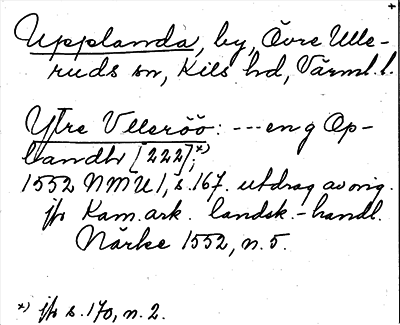 Upplanda, by, Övre Ulle-
ruds sn, Kils hd, Värml. l.
Ytre Vlleröö: --- en g Op-
landh [222];*)
1552 NMU1, s. 167. utdrag av orig.
jfr Kam. ark. landsk.-handl.
Närke 1552, n. 5.
*) jfr s. 170, n. 2.